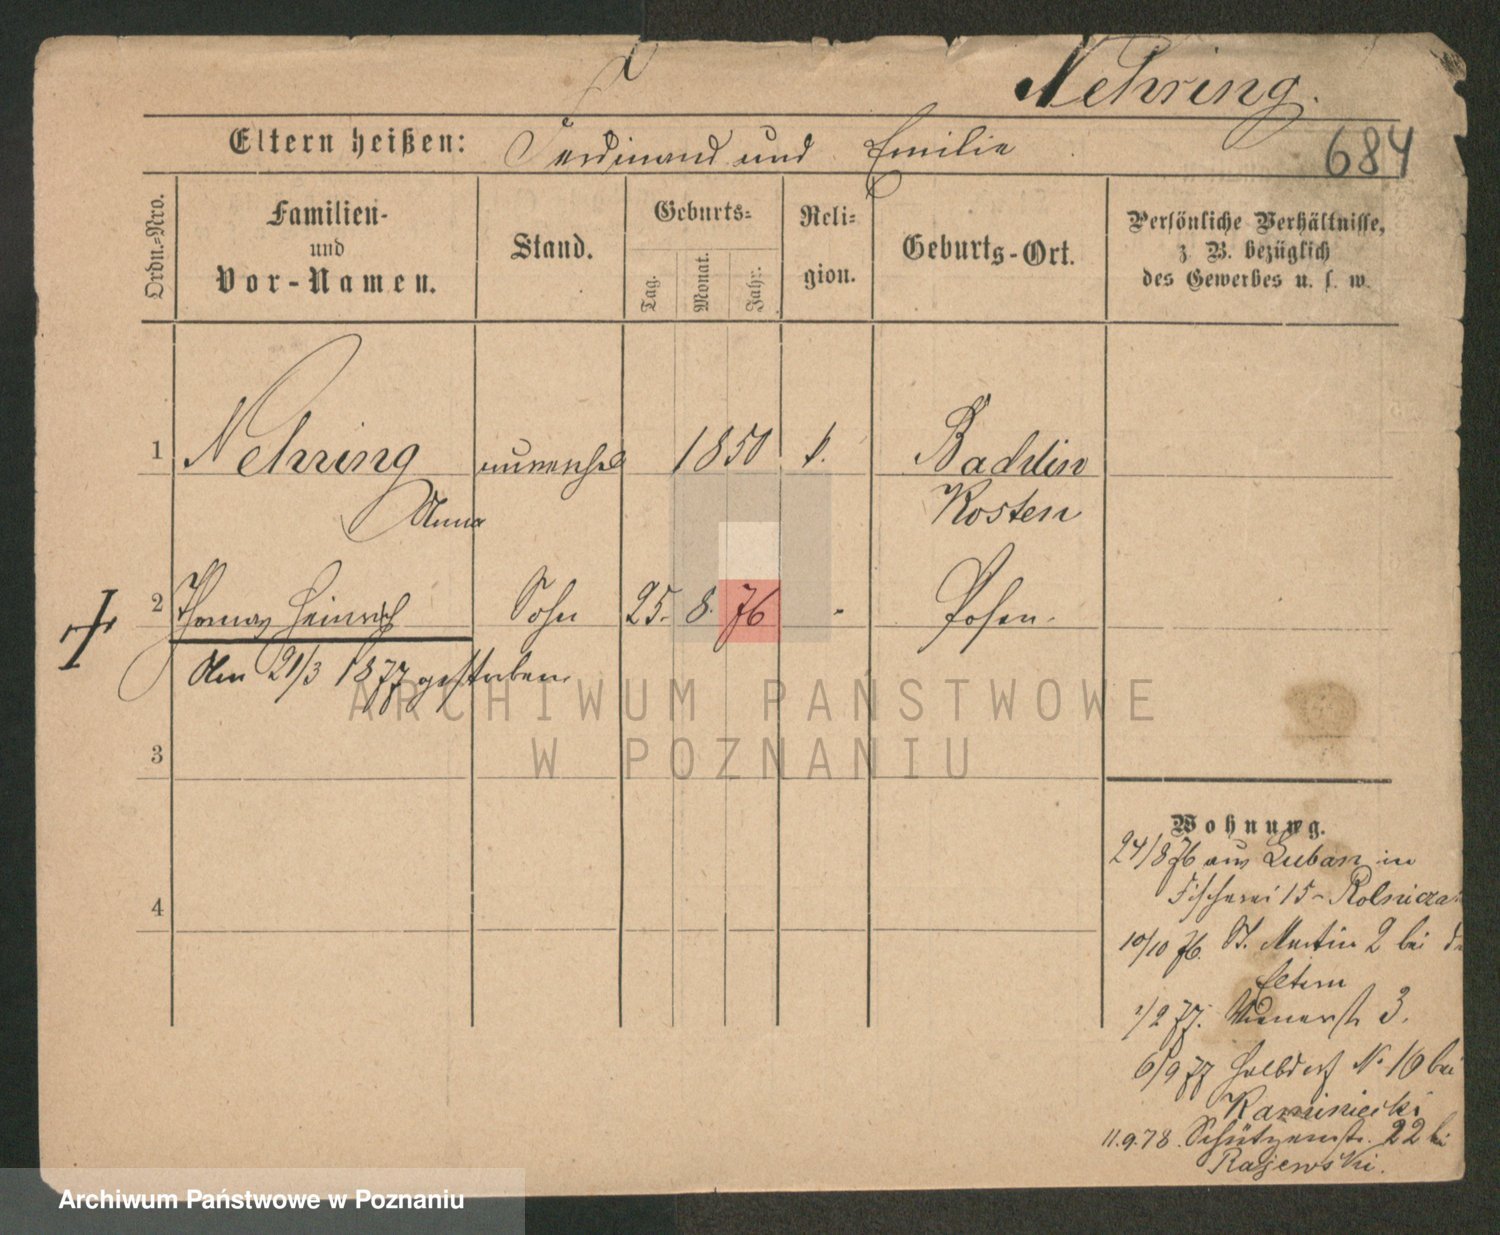 Nehring.
Eltern heißen: Ferdinand und Emilie
684
Ordn.-Nro.
Familien-
und
Vor-Namen.
Stand.
Geburts-
Tag.
Monat.
Jahr.
Reli-
gion.
Geburts-Ort.
Persönliche Verhältnisse,
z B. bezüglich
des Gewerbes u. s. w.
1 Nehring 1850 k.
Anna Kosten
2 Thomas Heinrich Sohn 25. 8. 76 Posen.
Am 21/3 1877 gestorben
ARCHIWUM PAŃSTWOWE
W POZNANIU
3
4
Wohnung.
24/8 76 aus Luban in
Fischerei 15 - Rolnicza
10/10 76. St. Martin 2 bei
Eltern
1/2 77. 3.
6/9 77 Halbdorf No 16 bei
Kaminiecki
11.9.78. Schützenstr. 22 bei
Rajewski.
Archiwum Państwowe w Poznaniu